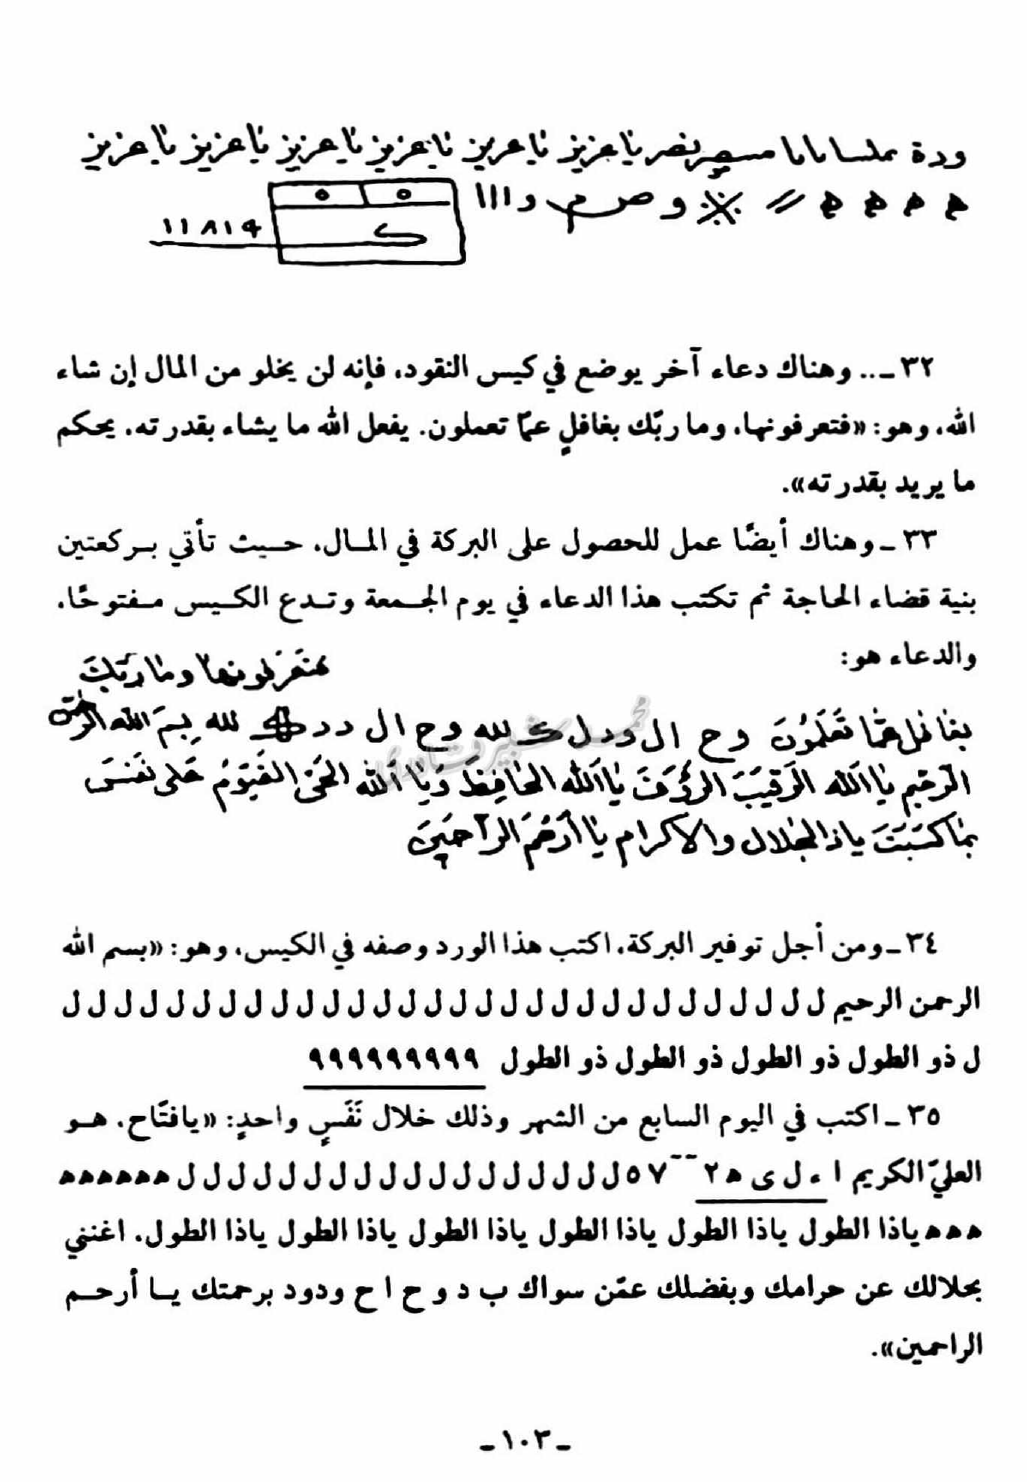 ودة علسا بابا مسيصر بفصر يا عزيز يا عزيز يا عزيز يا عزيز يا عزيز يا عزيز
ه ه ه ه // ※ و ص م و ااا
١١٨١٩
٣٢ ـ .. وهناك دعاء آخر يوضع في كيس النقود، فإنه لن يخلو من المال إن شاء
الله، وهو: «فتعرفونها، وما ربّك بغافلٍ عمّا تعملون. يفعل الله ما يشاء بقدرته، يحكم
ما يريد بقدرته».
٣٣ ـ وهناك أيضًا عمل للحصول على البركة في المال، حيث تأتي بركعتين
بنية قضاء الحاجة ثم تكتب هذا الدعاء في يوم الجمعة وتدع الكيس مفتوحًا،
والدعاء هو: فتعرفونها وما ربّك
بغافل عمّا تعلمون وح ال ودل لله وح ال دد لله بسم الله الرحمن
الرّحيم يا الله الرقيب الرؤف يا الله الحافظ ويا الله الحيّ القيوم على نفس
بما كسبت ياذالجلال والاكرام يا أرحم الرّاحمين
٣٤ ـ ومن أجل توفير البركة، اكتب هذا الورد وصفه في الكيس، وهو: «بسم الله
الرحمن الرحيم ل ل ل ل ل ل ل ل ل ل ل ل ل ل ل ل ل ل ل ل ل ل ل ل ل ل ل ل ل ل
ل ذو الطول ذو الطول ذو الطول ذو الطول ٩٩٩٩٩٩٩٩٩
٣٥ ـ اكتب في اليوم السابع من الشهر وذلك خلال نَفَسٍ واحدٍ: «يافتّاح، هو
العليّ الكريم ا ء ل ى ه ٢ -- ٧ ٥ ل ل ل ل ل ل ل ل ل ل ل ل ل ل ل ل ل ل ه ه ه ه ه ه
ه ه ه ياذا الطول ياذا الطول ياذا الطول ياذا الطول ياذا الطول ياذا الطول، اغنني
بحلالك عن حرامك وبفضلك عمّن سواك ب د و ح ا ح ودود برحمتك يا أرحم
الراحمين».
ـ ١٠٣ ـ